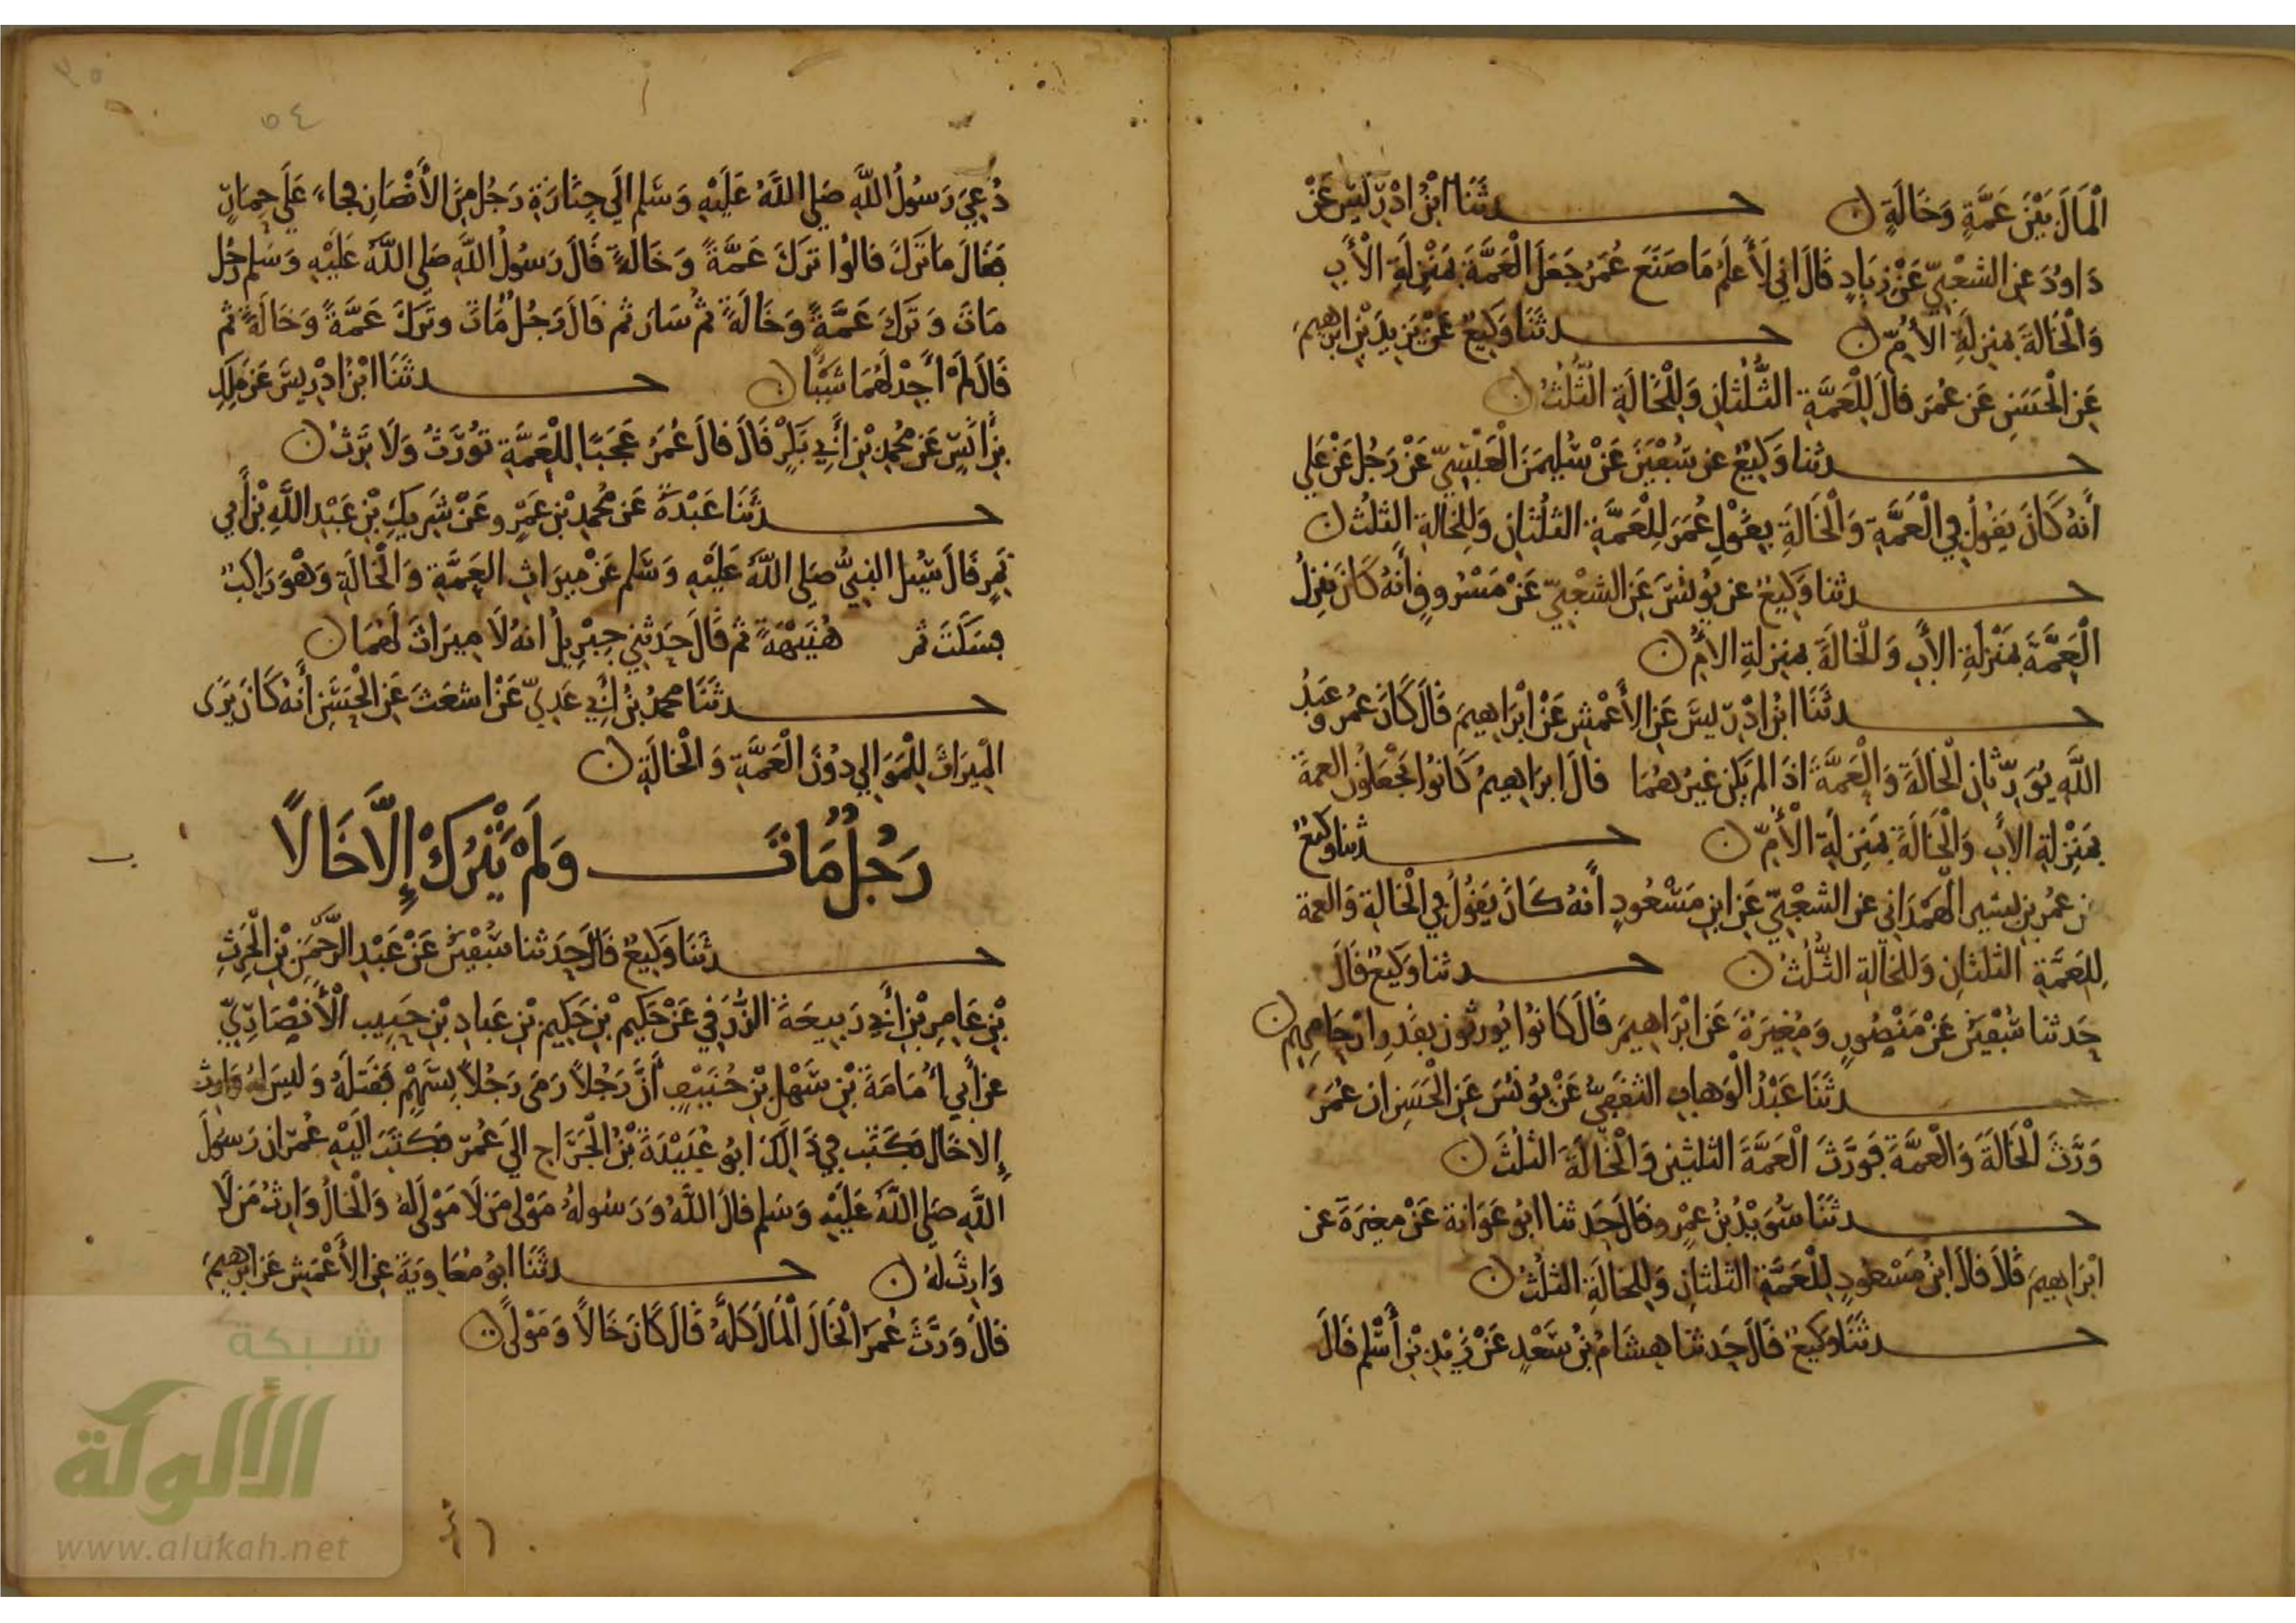 الْمَالَ بَيْنَ عَمَّةٍ وَخَالَةٍ ن حدثَنَا ابْنُ ادْرِيسَ عَنْ
دَاوُدَ عَنِ الشَعْبِيِّ عَنْ زِيَادٍ قَالَ اني لَأَعلَمُ مَا صَنَعَ عُمَرُ جَعَلَ الْعَمَّةَ بمَنْزِلَةِ الْأَبِ
وَالْخَالةَ بمنزِلَةِ الأُمِّ ن حدثَنَا وَكِيعٌ عَنْ يَزِيدَ بْنِ ابرهيمَ
عَنِ الْحَسَنِ عَن عُمَرَ قالَ لِلْعَمَّةِ الثُّلُثانِ وَلِلْخَالَةِ الثُّلُثُ ن
حدثنا وَكِيعٌ عن سُفْيَنَ عَنْ سُلَيمَنَ الْعَبْسِيِّ عَنْ رَجُلٍ عَنْ عَلي
أَنهُ كَانَ يَقُولُ فِي الْعَمَّةِ وَالْخَالَةِ بقَوْلِ عُمَرَ لِلْعَمَّةِ الثلُثَانِ وَلِلخَالةِ الثلُثُ ن
حدثنا وَكِيعٌ عن يُونُسَ عَنِ الشعْبِيِّ عَنْ مَسْرُوقٍ أَنهُ كَانَ يُنزِلُ
الْعَمَّةَ بمَنْزِلَةِ الأَبِ وَالْخَالَةَ بمنزلةِ الأُمِّ ن
حدثَنَا ابْنُ ادْرِيسَ عَنِ الأَعْمَشِ عَنْ ابْرَاهِيمَ قَالَ كَانَ عُمَرُ وعَبْدُ
اللَّهِ يُوَرِّثَانِ الْخَالَةَ وَالْعَمَّةَ اذَا لم يَكن غيرُهُمَا قالَ ابرَاهِيمُ كَانُوا يَجْعَلُونَ العمةَ
بمَنْزِلَةِ الأَبِ وَالْخَالَةَ بمَنزِلَةِ الْأُمِّ ن حدثنا وكيعٌ
عن عُمَرَ بنِ بَشيرٍ الْهَمْدَاني عن الشعْبِيِّ عَنِ ابنِ مَسْعُودٍ أَنهُ كَانَ يَقُولُ فِي الْخَالةِ وَالعمة
لِلعَمَّةِ الثلثانِ وَللخَالةِ الثُّلُثُ ن حدثنا وَكيعٌ قَالَ
حَدثنا سُفْيَنُ عَنْ مَنْصُورٍ وَمُغِيرَةَ عَن ابْرَاهِيمَ قَالَ كَانُوا يُورثون بقَدرِ ارْحَامِهِم ن
حدثَنَا عَبْدُ الْوَهابِ الثقَفِيُّ عَنْ يُونُسَ عَنِ الْحَسَنِ ان عُمَرَ
وَرَّثَ الْخَالَةَ وَالْعَمَّةَ فَوَرَّثَ الْعَمَّةَ الثلثينِ وَالْخَالَةَ الثلُثَ ن
حدثَنَا سُوَيْدُ بْنُ عَمْرٍو قَالَ حَدثنا ابُو عَوَانةَ عَنْ مغيرَةَ عن
ابْرَاهِيمَ قَالَ قالَ ابْنُ مَسْعُودٍ لِلْعَمَّةِ الثلثانِ وَلِلخَالَةِ الثلُثُ ن
حدثَنَا وَكيعٌ قَالَ حَدثنا هِشَامُ بْنُ سَعْدٍ عَنْ زَيْدِ بْنِ أَسْلم قَالَ
دُعِيَ رَسُولُ اللَّهِ صَلى اللَّهُ عَلَيْهِ وَسَلم الَى جِنَازَةِ رَجُلٍ مِنَ الأَنصَارِ فجاءَ عَلَى حِمَارٍ
فقَالَ مَا تَرَكَ قالُوا تَرَكَ عَمَّةً وَخَالَةً قَالَ رَسُولُ اللَّهِ صَلى اللَّهُ عَلَيْهِ وَسَلم رَجُلٌ
مَاتَ وَتَرَكَ عَمَّةً وَخَالَةً ثمُ سَارَ ثم قَالَ رَجُلٌ مَاتَ وتَرَكَ عَمَّةً وَخَالَةً ثم
قَالَ لَمْ أَجِدْ لَهُمَا شَيْئًا ن حدثَنَا ابْنُ ادْرِيسَ عَن مَلِكِ
بْنِ أَنَسٍ عَن مُحمدِ بْنِ أَبِي بَكرٍ قَالَ قالَ عُمَرُ عَجَبًا لِلْعَمَّةِ تُورَثُ وَلَا تَرِثُ ن
حدثَنَا عَبْدَةُ عَن مُحمدِ بْنِ عَمْرٍو عَنْ شَرِيكِ بْنِ عَبْدِ اللَّهِ بْنِ أَبي
نَمِرٍ قَالَ سُئلَ النبِيُّ صَلى اللَّهُ عَلَيْهِ وَسَلم عَنْ مِيرَاثِ العَمَّةِ وَالْخَالَةِ وَهْوَ رَاكِبٌ
فسَكَتَ ثم هُنَيْهَةً ثم قَالَ حَدثني جِبْرِيلُ انهُ لَا مِيرَاثَ لَهُمَا ن
حدثَنَا محمدُ بْنُ أَبِي عَدِيٍّ عَنْ اشعَثَ عَنِ الْحَسَنِ أَنهُ كَانَ يَرَى
الْمِيرَاثَ لِلْمَوَالِي دُونَ الْعَمَّةِ وَالْخَالَةِ ن
رَجُلٌ مَاتَ وَلَمْ يَتْرُكْ إِلَّا خَالًا
حدثَنَا وَكِيعٌ قَالَ حَدثنا سُفْيَنُ عَنْ عَبْدِ الرَّحْمَنِ بْنِ الْحَرِثِ
بْنِ عَامِرِ بْنِ أَبِي رَبِيعَةَ الزُّرَقِي عَنْ حَكِيمِ بْنِ حَكِيمِ بْنِ عَبادِ بْنِ حَبِيبٍ الْأَنْصَارِيِّ
عن أَبِي أُمَامَةَ بْنِ سَهْلِ بْنِ حُنَيْفٍ أَنَّ رَجُلًا رَمَى رَجُلًا بِسَهْمٍ فقَتَلَهُ وَليسَ لهُ وَارثٌ
إِلا خَالٌ فكَتَبَ فِي ذَالِكَ ابُو عُبَيْدَةَ بْنُ الْجَرَّاحِ الَى عُمَرَ فكَتَبَ الَيْهِ عُمَرُ ان رَسُولَ
اللَّهِ صَلى اللَّهُ عَلَيْهِ وَسَلم قالَ اللَّهُ وَرَسُولهُ مَوْلى مَن لَا مَوْلَى لهُ وَالْخَالُ وَارِثُ مَن لَا
وَارِثَ لَهُ ن حدثَنَا ابُو مُعَاوِيَةَ عنِ الأَعْمَشِ عَن ابرهِيمَ
قَالَ وَرَّثَ عُمَرُ الْخَالَ الْمَالَ كلَّهُ قَالَ كَانَ خَالًا وَمَوْلًى ن
شبكة
الألوكة
www.alukah.net